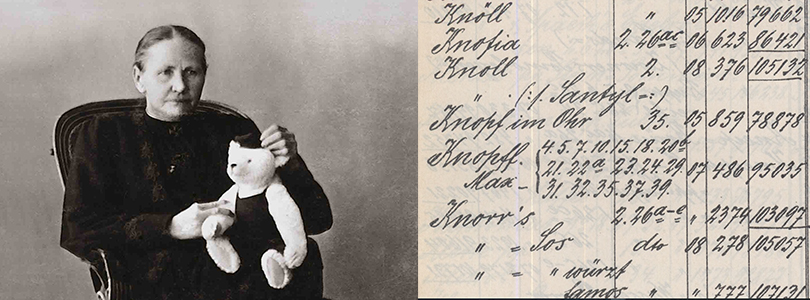 Knöll " 05 1016 79662
Knofia 2. 26a-c 06 623 86421
Knoll 2. 08 376 105132
" (:/. Santyl =:)
Knopf im Ohr 35. 05 859 78878
Knopff. 4.5.7.10.15.18.20b
21.22a 23.24.29. 07 486 95035
Max - 31.32.35.37.39.
Knorr's 2.26a-c " 2374 103097
" = Sos dto 08 278 105057
" = " würzt
famos " " 777 107131